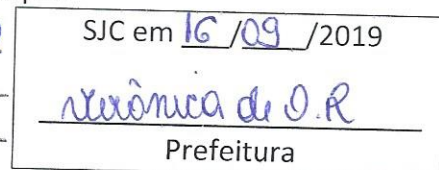 SJC em 16/09/2019
Verônica de O.R
Prefeitura